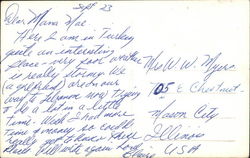 Sept 23
Dear Mama Mae
Here I am in Turkey
quite an interesting
place - very poor weather
is really stormy. We
(a girlfriend) are on our
way to Lebanon now Trying
to do a lot in a little
time. Wish I had more
time & money so could
really
back. Will write again Love
Mrs W. W. Myers
705 E Chestnut
Mason City
Illinois
USA